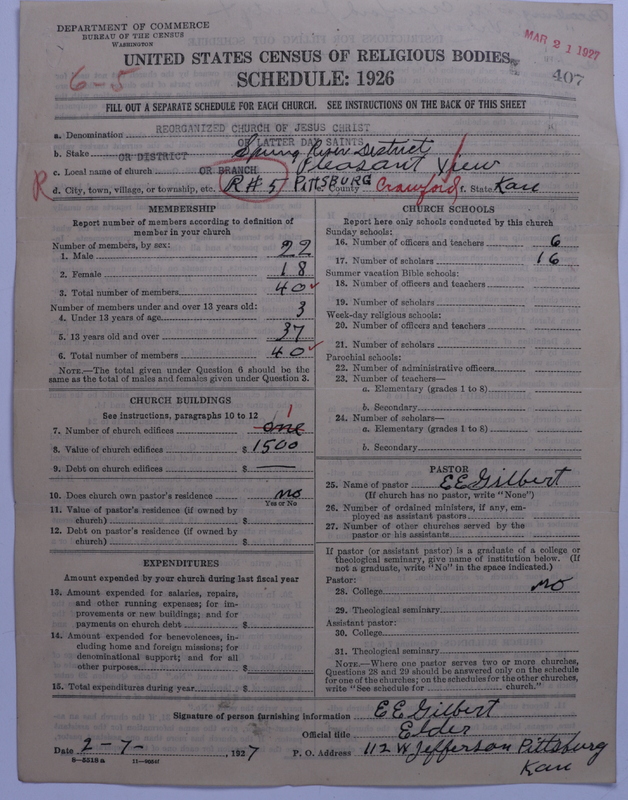 DEPARTMENT OF COMMERCE
BUREAU OF THE CENSUS
WASHINGTON
MAR 21 1927
UNITED STATES CENSUS OF RELIGIOUS BODIES
6-5
SCHEDULE: 1926
407
FILL OUT A SEPARATE SCHEDULE FOR EACH CHURCH. SEE INSTRUCTIONS ON THE BACK OF THIS SHEET
a. Denomination REORGANIZED CHURCH OF JESUS CHRIST
OF LATTER DAY SAINTS
b. Stake OR DISTRICT Spring River District
c. Local name of church OR BRANCH Pleasant View
R d. City, town, village, or township, etc. R#5 PITTSBURG County Crawford f. State Kan
MEMBERSHIP
Report number of members according to definition of
member in your church
Number of members, by sex:
1. Male 22
2. Female 18
3. Total number of members 40
Number of members under and over 13 years old:
4. Under 13 years of age 3
5. 13 years old and over 37
6. Total number of members 40
NOTE.—The total given under Question 6 should be the
same as the total of males and females given under Question 3.
CHURCH BUILDINGS
See instructions, paragraphs 10 to 12
7. Number of church edifices one 1
8. Value of church edifices $ 1500
9. Debt on church edifices $ —
10. Does church own pastor's residence no
Yes or No
11. Value of pastor's residence (if owned by
church) $
12. Debt on pastor's residence (if owned by
church) $
EXPENDITURES
Amount expended by your church during last fiscal year
13. Amount expended for salaries, repairs,
and other running expenses; for im-
provements or new buildings; and for
payments on church debt $
14. Amount expended for benevolences, in-
cluding home and foreign missions; for
denominational support; and for all
other purposes $
15. Total expenditures during year $
CHURCH SCHOOLS
Report here only schools conducted by this church
Sunday schools:
16. Number of officers and teachers 6
17. Number of scholars 16
Summer vacation Bible schools:
18. Number of officers and teachers
19. Number of scholars
Week-day religious schools:
20. Number of officers and teachers
21. Number of scholars
Parochial schools:
22. Number of administrative officers
23. Number of teachers—
a. Elementary (grades 1 to 8)
b. Secondary
24. Number of scholars—
a. Elementary (grades 1 to 8)
b. Secondary
PASTOR
25. Name of pastor E E Gilbert
(If church has no pastor, write "None")
26. Number of ordained ministers, if any, em-
ployed as assistant pastors
27. Number of other churches served by the
pastor or his assistants
If pastor (or assistant pastor) is a graduate of a college or
theological seminary, give name of institution below. (If
not a graduate, write "No" in the space indicated.)
Pastor:
28. College no
29. Theological seminary
Assistant pastor:
30. College
31. Theological seminary
NOTE.—Where one pastor serves two or more churches,
Questions 28 and 29 should be answered only on the schedule
for one of the churches; on the schedules for the other churches,
write "See schedule for church."
Signature of person furnishing information E E Gilbert
Official title Elder
Date 2-7-, 1927 P. O. Address 112 W Jefferson Pittsburg
Kan
8—5518 a 11—90547